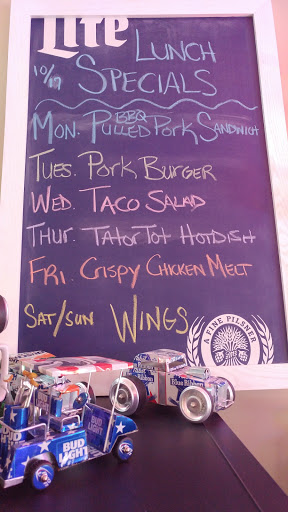 Lite
LUNCH
10/17 SPECIALS
MON. PULLED BBQ PORK SANDWICH
TUES. PORK BURGER
WED. TACO SALAD
THUR. TATOR TOT HOTDISH
FRI. CRISPY CHICKEN MELT
SAT/SUN WINGS
A FINE PILSNER
Blue Ribbon
BUD
LIGHT